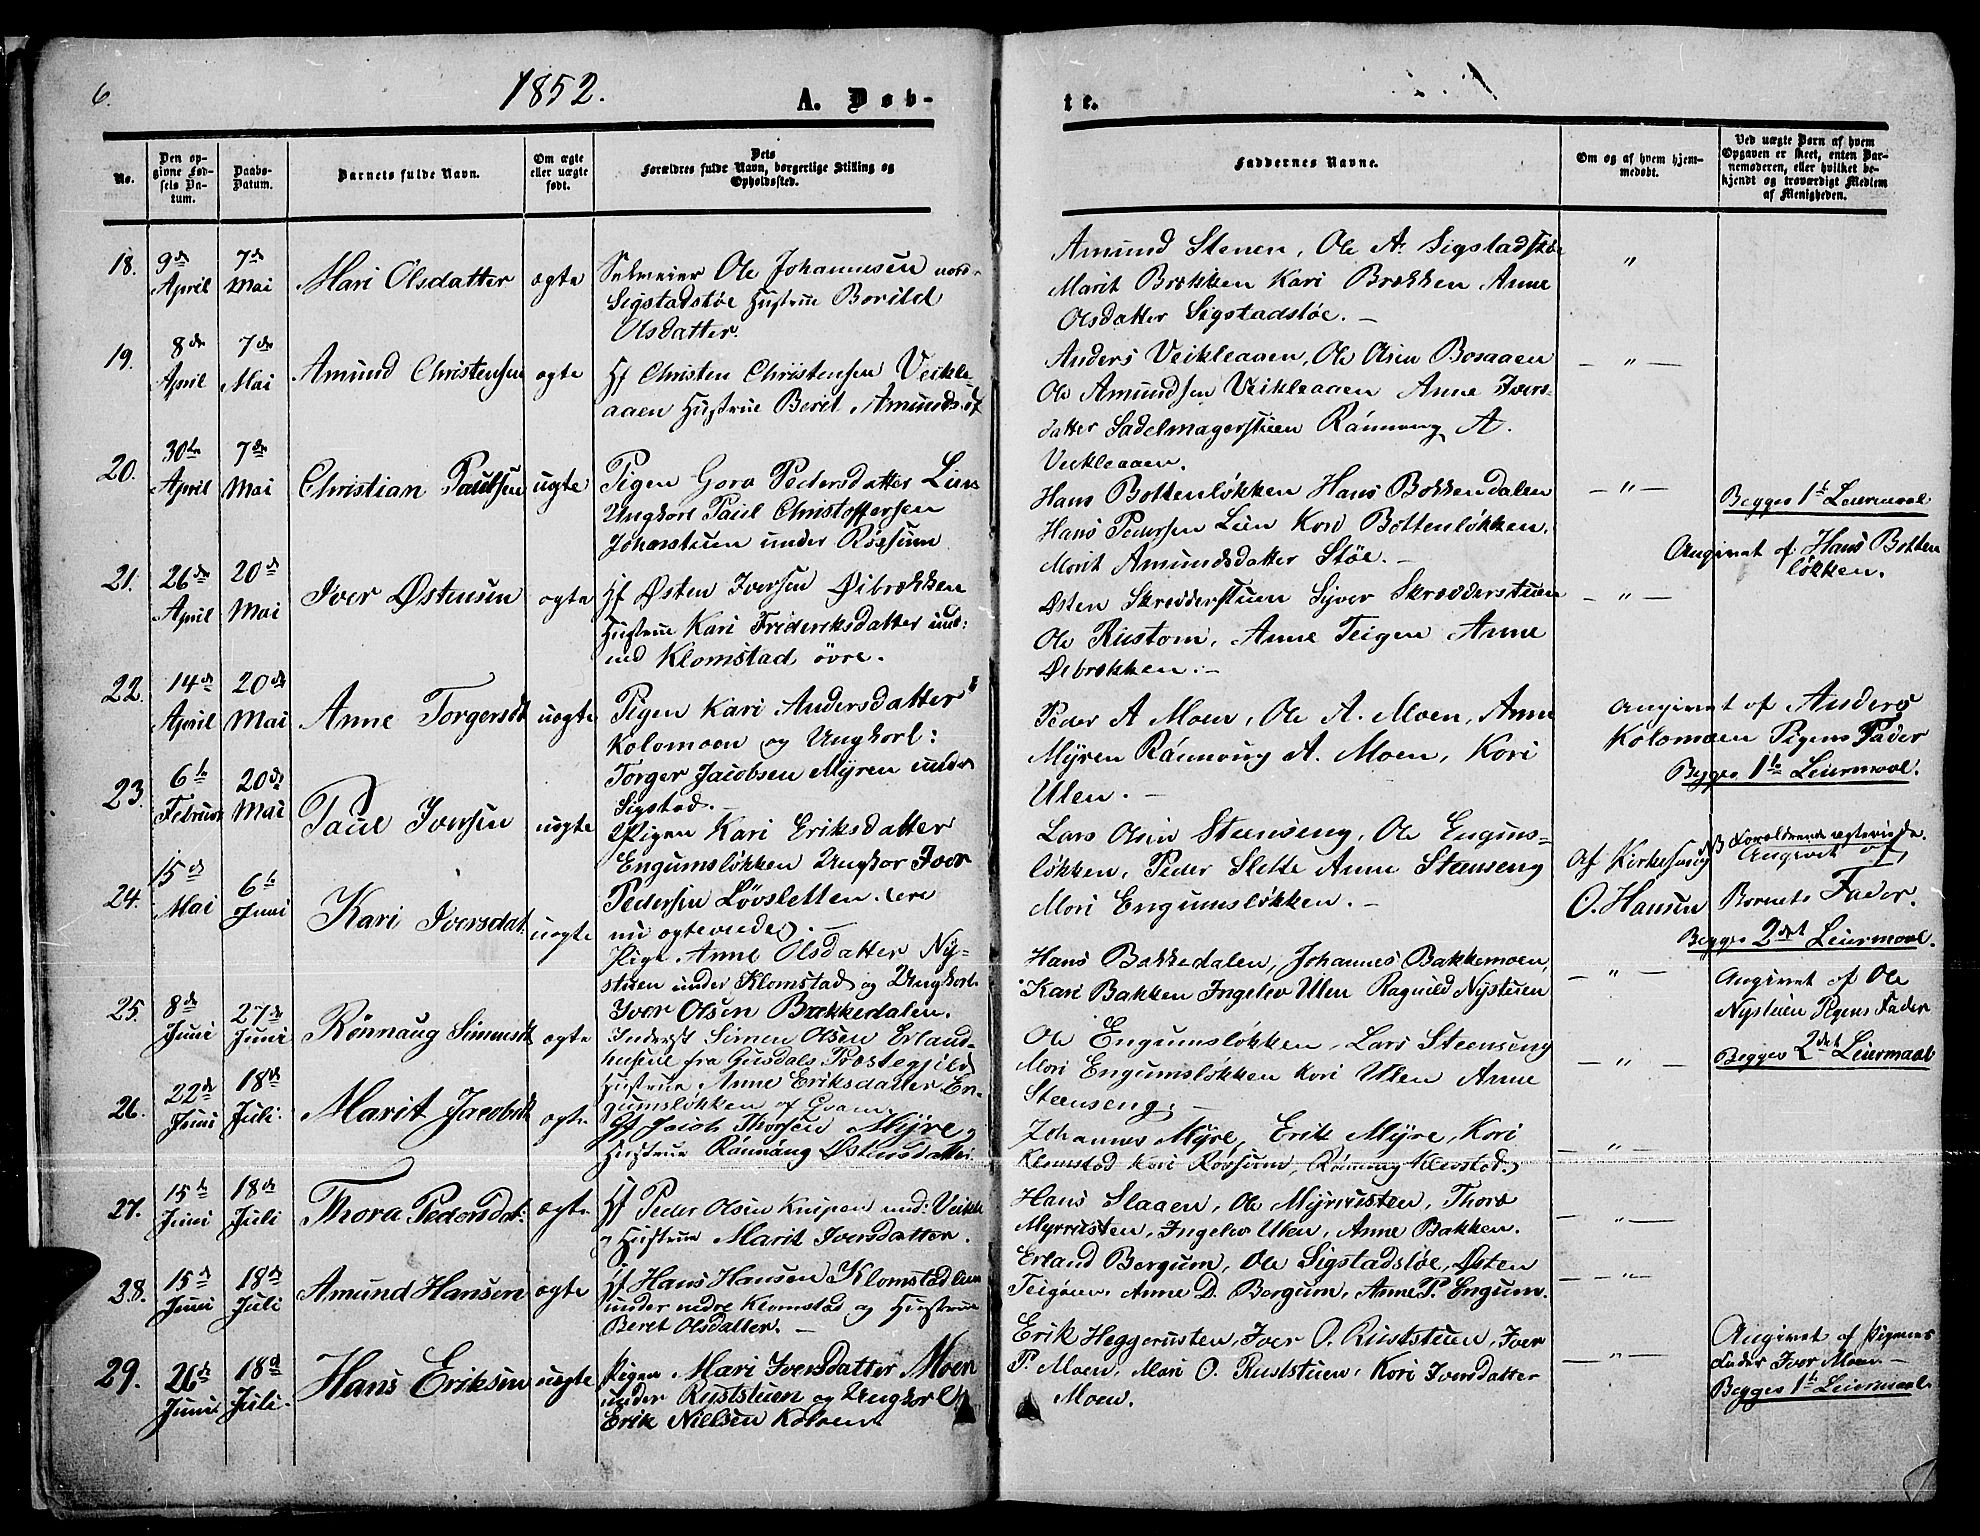 6.
1852.
A. Døb-
te.
No.
Den op-
givne Fød-
sels Da-
tum.
Daabs-
Datum.
Barnets fulde Navn.
Om ægte
eller uægte
født.
Dets
Forældres fulde Navn, borgerlige Stilling og
Opholdssted.
Faddernes Navne.
Om og af hvem hjem-
medøbt.
Ved uægte Børn af hvem
Opgaven er skeet, enten Bar-
nemoderen, eller hvilket be-
kjendt og troværdigt Medlem
af Menigheden.
18.
9de
April
7de
Mai
Mari Olsdatter
ægte
Selveier Ole Johannesen nord-
Sigstadstøe Hustrue Borild
Olsdatter.
Amund Stenen, Ole A. Sigstadstøe
Marit Brækken Kari Brækken Anne
Olsdatter Sigstadsløe. –
"
19.
8de
April
7de
Mai
Amund Christensen
ægte
Hf Christen Christensen Veikle-
aaen Hustrue Beret Amundsd
Anders Veikleaaen, Ole Olsen Bosaaen
Ole Amundsen Veikleaaen Anne Ivers-
datter Sadelmagerstuen Rønnoug A.
Veikleaaen.
– " –
20.
30te
April
7de
Mai
Christian Paulsen
uægte
Pigen Goro Pedersdatter Lien
Ungkarl Paul Christoffersen
Joharstuen under Røssum
Hans Bottenløkken Hans Bakkendalen
Hans Pedersen Lien Kari Bottenløkken.
Marit Amundsdatter Støe. –
– " –
Begges 1ste Leiermaal
Angivet af Hans Botten
løkken.
21.
26de
April
20de
Mai
Iver Østensen
ægte
Hf Østen Iversen Øibrækken
Hustrue Kari Frideriksdatter und:
ned Klomstad øvre.
Østen Skrædderstuen Syver Skrædderstuen
Ole Rustom, Anne Teigen Anne
Øibrækken. –
– " –
22.
14de
April
20de
Mai
Anne Torgersdt
uægte
Pigen Kari Andersdatter
Kolomoen og Ungkarl:
Torger Jacobsen Myren under
Sigstad. –
Peder A Moen, Ole A. Moen, Anne
Myren Rønnoug A. Moen, Kari
Ulen. –
Angivet af Anders
Kolomoen Pigens Fader
Begges 1ste Leiermaal.
23.
6te
Februar
20de
Mai
Paul Iversen
uægte
Pigen Kari Eriksdatter
Engumsløkken Ungkar Iver
Pedersen Løvsletten. (ere
nu ægteviede). –
Lars Olsen Steenseng, Ole Engums-
løkken, Peder Slette Anne Steenseng
Mari Engumsløkken. –
Af Kirkesang
O. Hansen
NB Forældrene ægteviede.
Angivet af
Barnets Fader.
Begges 2det Leiermaal.
24.
15de
Mai
6te
Juni
Kari Iversdat.
uægte
Pige Anne Olsdatter Ny-
stuen under Klomstad og Ungkarl
Iver Olsen Bakkedalen.
Hans Bakkedalen, Johannes Bakkemoen,
Kari Bakken Ingelev Ulen Ragnild Nystuen
– " –
Angivet af Ole
Nystuen Pigens Fader
Begges 2det Leiermaal
25.
8de
Juni
27de
Juni
Rønnaug Simensdt
ægte
Inderst Simen Olsen Erland-
husene fra Gusdals Præstegjeld
Hustrue Anne Eriksdatter En-
gumsløkken af Qvam.
Ole Engumsløkken, Lars Steenseng
Mari Engumsløkken Kari Ulen Anne
Steenseng. –
– " –
26.
22de
Juni
18de
Juli.
Marit Jacobsdt
ægte
Hf Jacob Thorsen Myre,
Hustrue Rønnaug Østensdatter
Johannes Myre, Erik Myre, Kari
Klomstad Kari Røssum, Rønnoug Klevstad.
– " –
27.
15de
Juni
18de
Juli
Thora Pedersdat.
ægte
Hf Peder Olsen Knipen und: Veikle
Hustrue Marit Iversdatter.
Hans Slaaen, Ole Myrrusten, Thore
Myrrusten, Ingelev Ulen, Anne Bakken.
– " –
28.
15de
Juni
18de
Juli
Amund Hansen
ægte
Hf Hans Hansen Klomstadlien
under nedre Klomstad og Hustrue
Beret Olsdatter. –
Erland Bergum, Ole Sigstadsløe, Østen
Teigen, Anne D. Bergum, Anne P. Engum.
– " –
29.
26de
Juni
18de
Juli.
Hans Eriksen
uægte
Pigen Mari Iversdatter Moen
under Ruststuen og Ungkarl
Erik Nielsen Koloens
Erik Heggerusten, Iver O. Ruststuen, Iver
P. Moen, Mari O. Ruststuen, Kari Iversdatter
Moen.
– " –
Angivet af Pigens
Fader Iver Moen –
Begges 1ste Leiermaal.